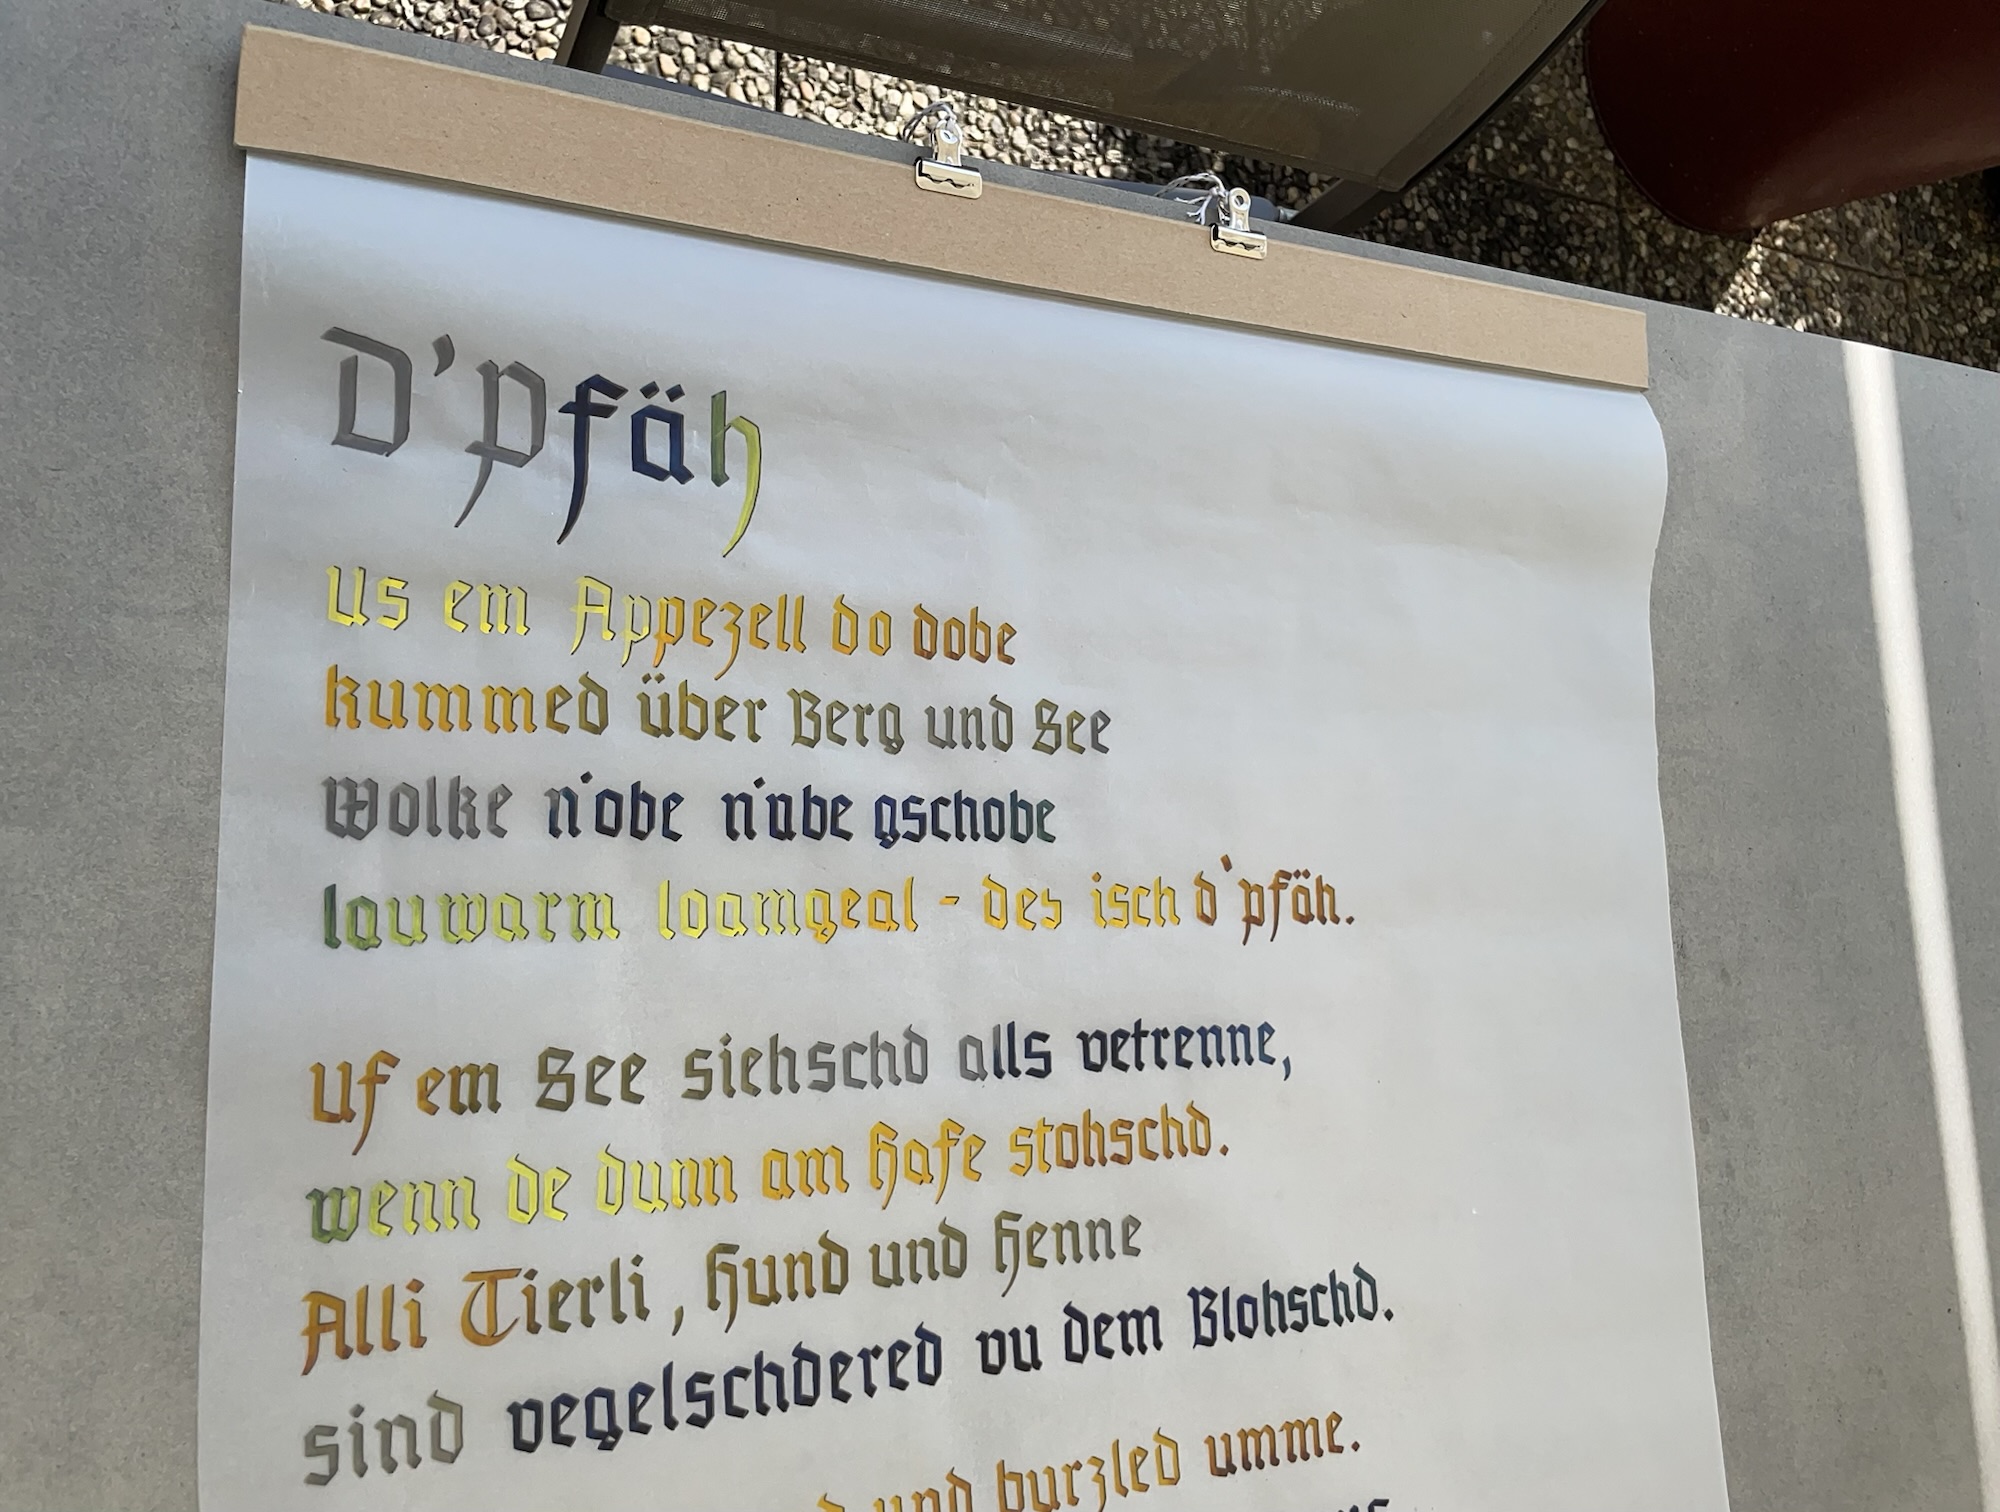 D'Pfäh
Us em Appezell do dobe
kummed über Berg und See
Wolke n'obe n'abe gschobe
lauwarm loamgeal - des isch d'pfäh.
Uf em See siehschd alls vetrenne,
wenn de dunn am Hafe stohschd.
Alli Tierli, Hund und Henne
sind vegelschdered vu dem Blohschd.
und burzled umme.